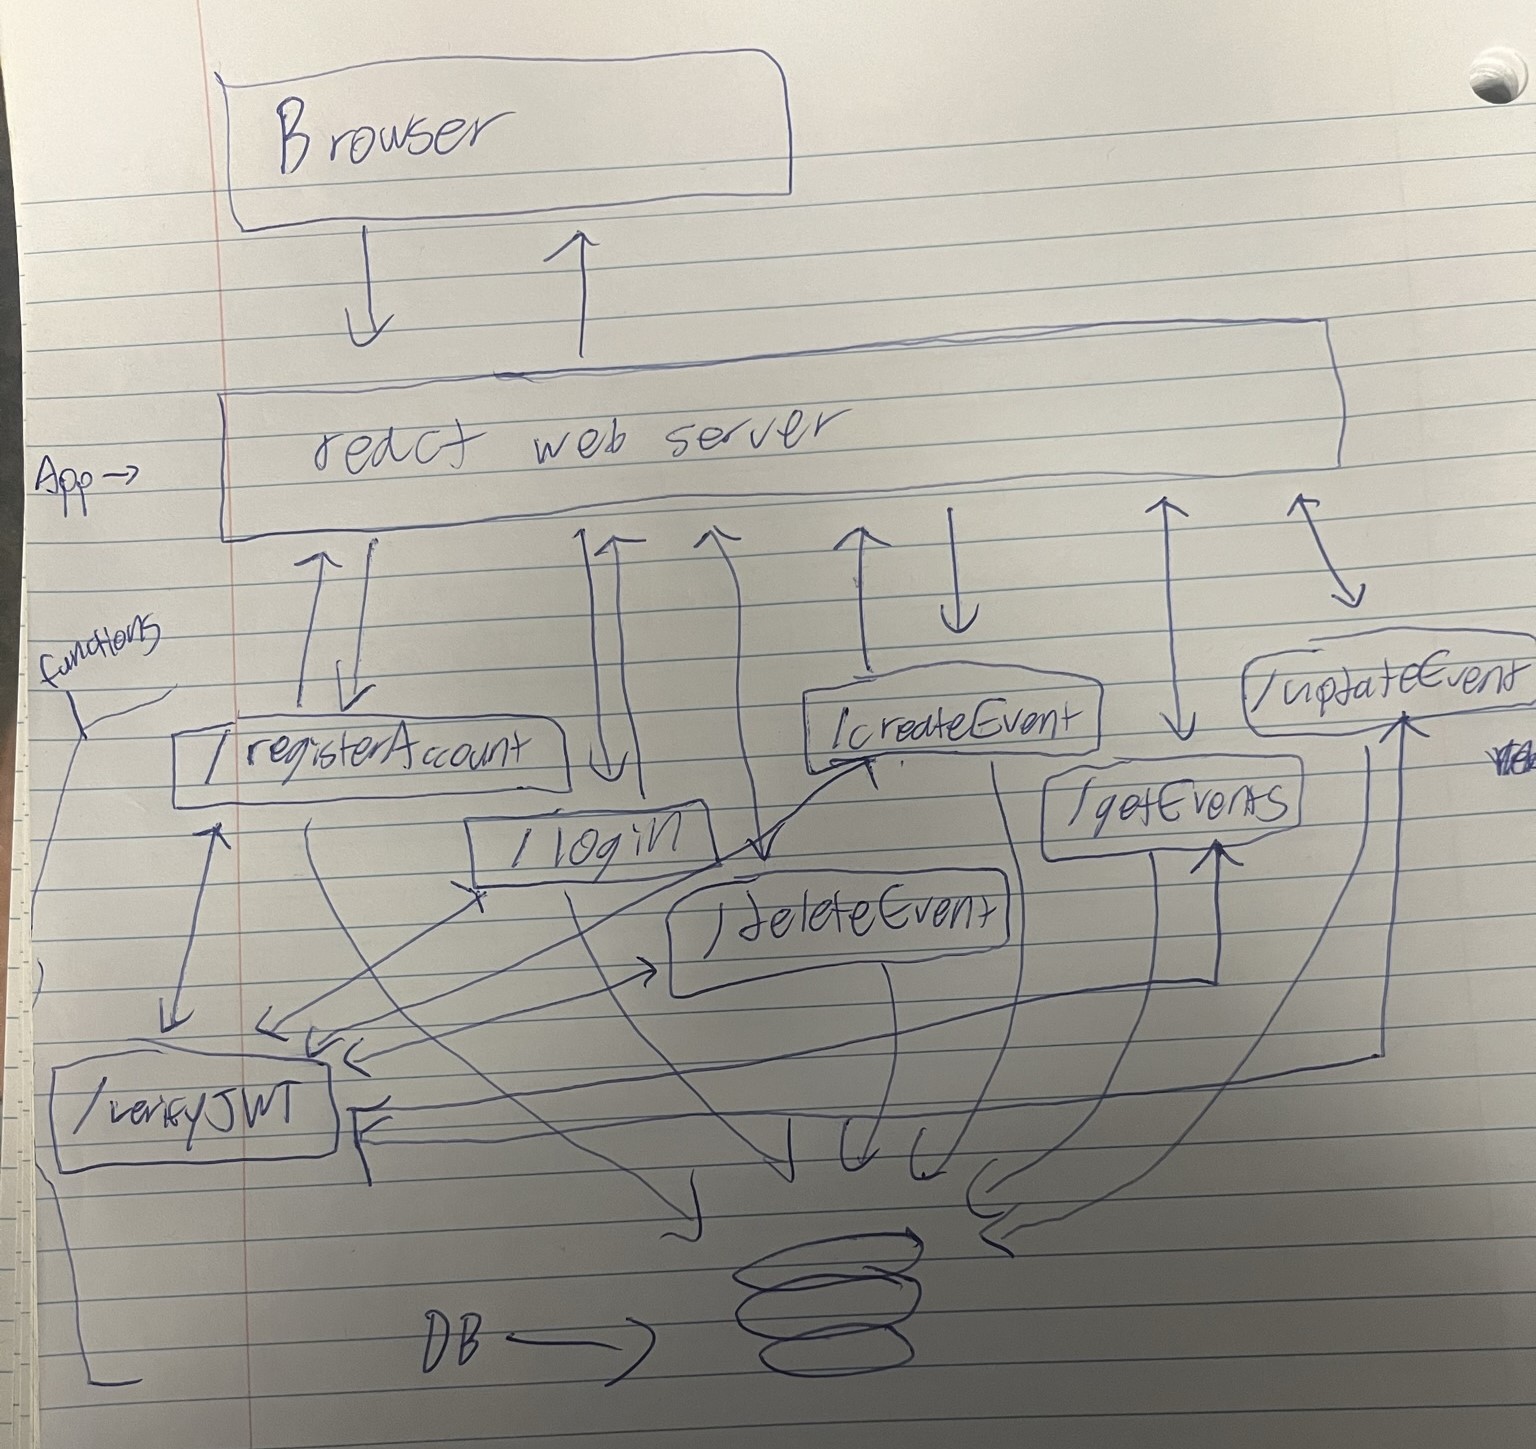 Browser
react web server
App →
functions
/registerAccount
/login
/deleteEvent
/createEvent
/getEvents
/updateEvent
/verifyJWT
DB →